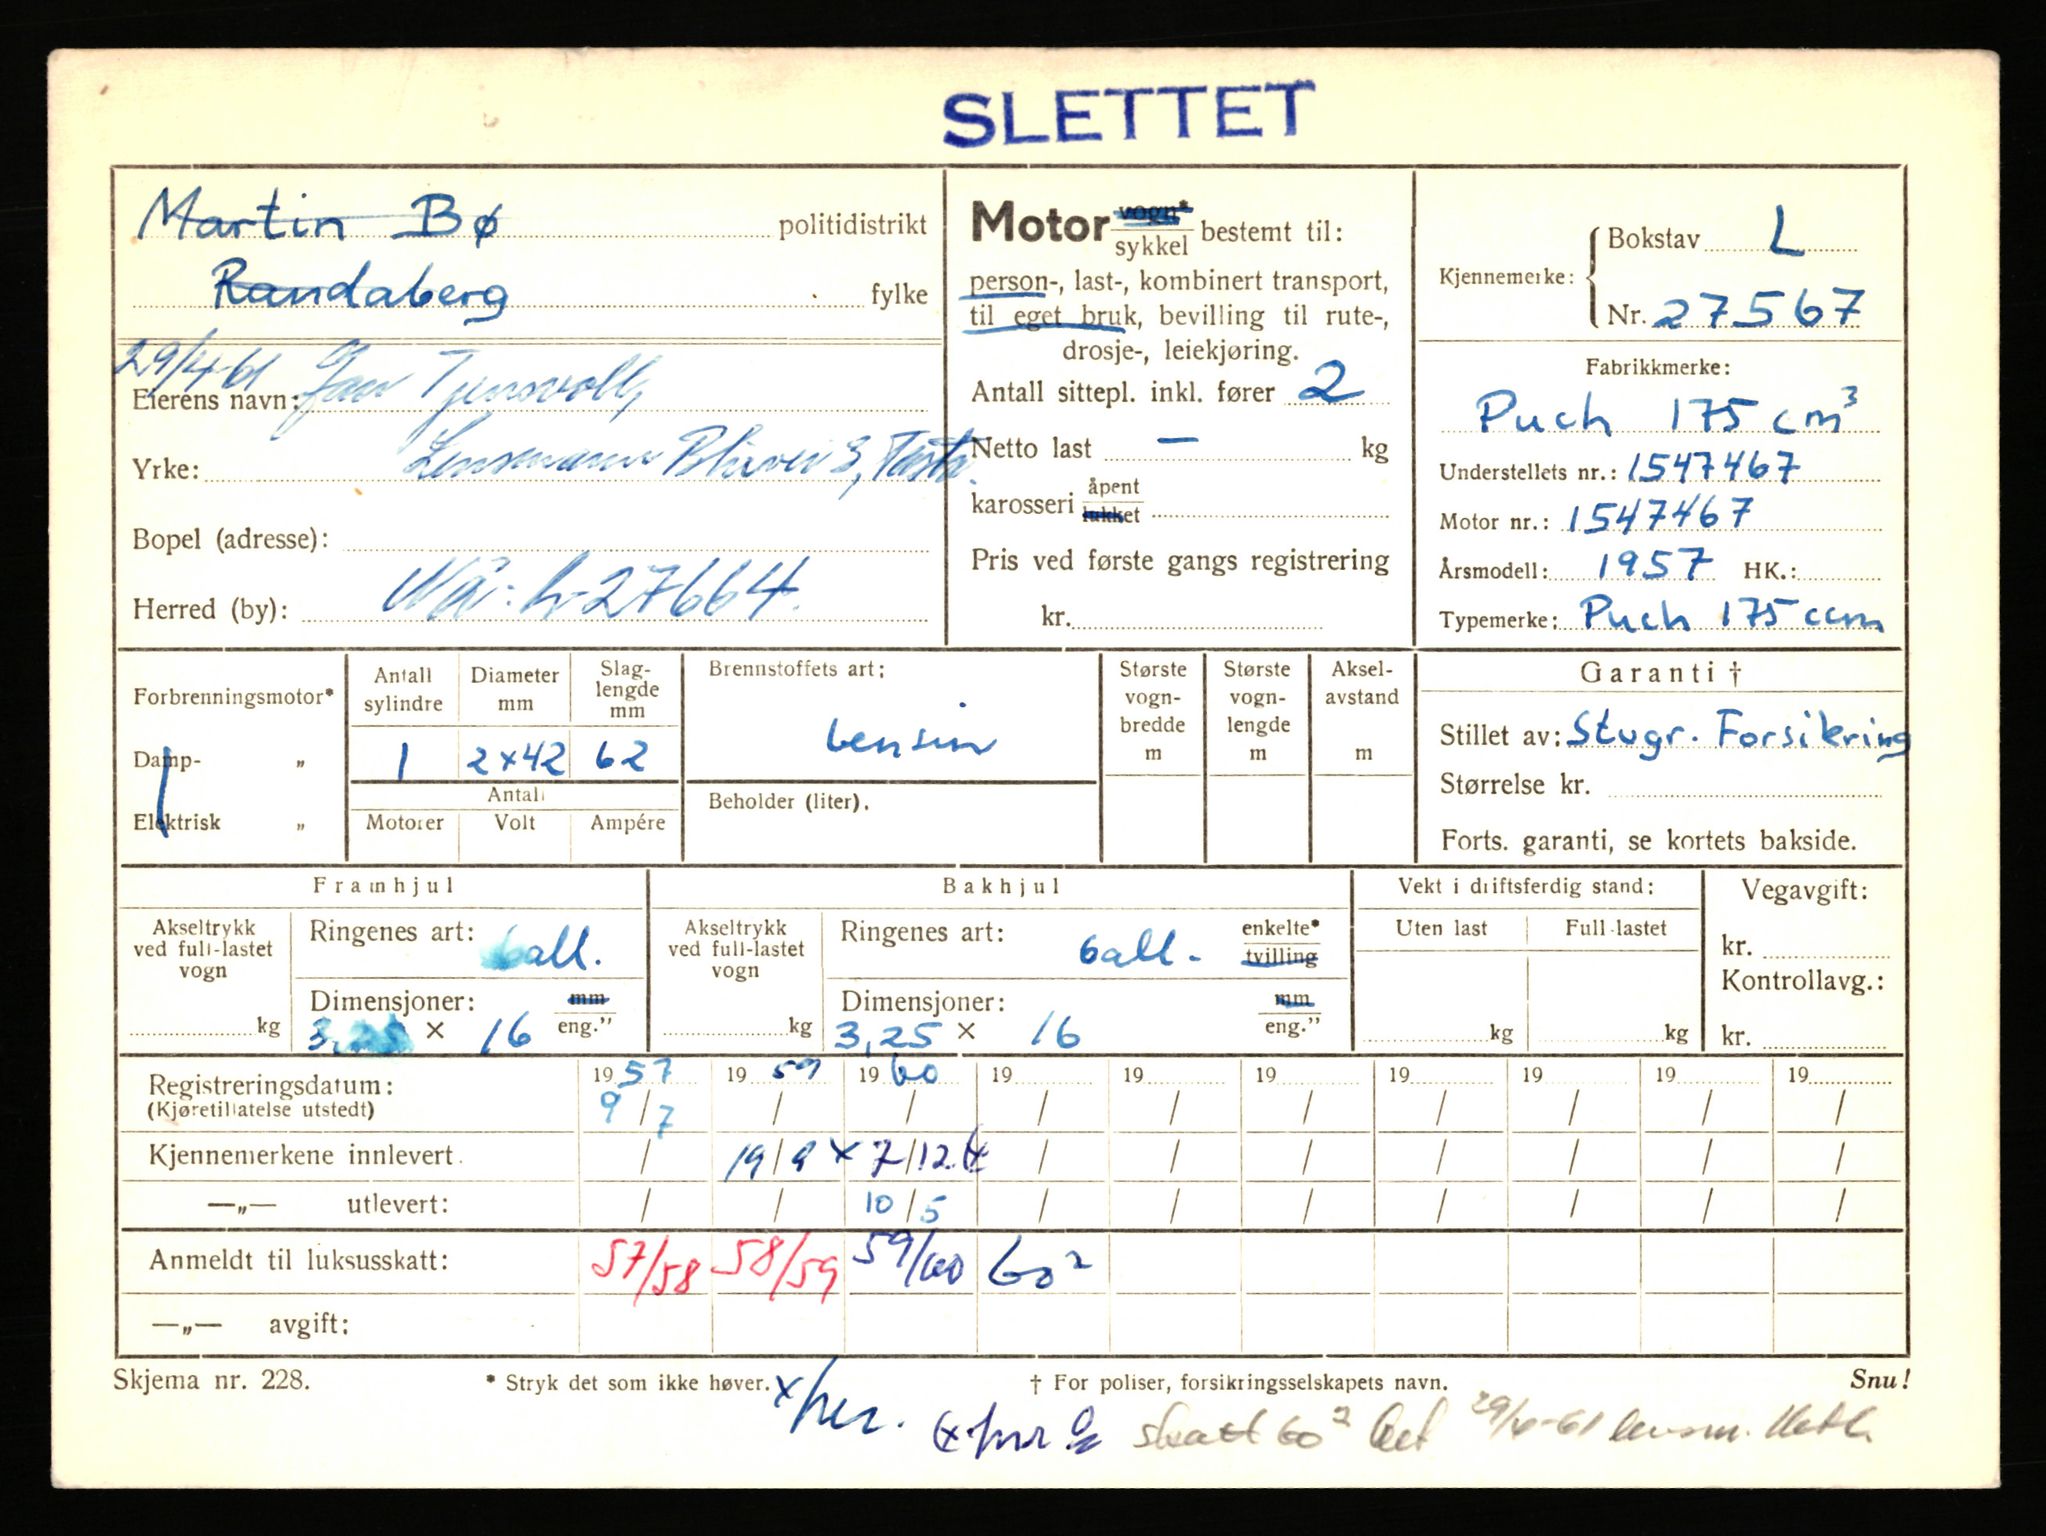 SLETTET
Martin Bø politidistrikt
Randaberg fylke
29/4-61 Jan Tjensvoll,
Eierens navn:
Yrke: Lensmann 3, Tasta.
Bopel (adresse):
Herred (by): Nå: L-27664.
Motor vogn*
sykkel bestemt til:
person-, last-, kombinert transport,
til eget bruk, bevilling til rute-,
drosje-, leiekjøring.
Antall sittepl. inkl. fører 2
Netto last — kg
karosseri åpent
lukket
Pris ved første gangs registrering
kr.
Kjennemerke: Bokstav L
Nr. 27567
Fabrikkmerke:
Puch 175 cm³
Understellets nr.: 1547467
Motor nr.: 1547467
Årsmodell: 1957 HK.:
Typemerke: Puch 175 ccm
Forbrenningsmotor*
Damp- „
Elektrisk „
Antall sylindre
1
Diameter mm
2x42
Slag-
lengde
mm
62
Antall
Motorer Volt Ampére
Brennstoffets art:
bensin
Beholder (liter).
Største
vogn-
bredde
m
Største
vogn-
lengde
m
Aksel-
avstand
m
Garanti †
Stillet av: Stvgr. Forsikring
Størrelse kr.
Forts. garanti, se kortets bakside.
Framhjul
Akseltrykk
ved full-lastet
vogn
kg
Ringenes art: ball.
Dimensjoner: mm
3,25 × 16 eng."
Bakhjul
Akseltrykk
ved full-lastet
vogn
kg
Ringenes art: ball. enkelte*
tvilling
Dimensjoner: mm
3,25 × 16 eng."
Vekt i driftsferdig stand:
Uten last Full-lastet
kg kg
Vegavgift:
kr.
Kontrollavg.:
kr.
Registreringsdatum: 1957 1959 1960 19 19 19 19 19 19 19
(Kjøretillatelse utstedt) 9/7 / / / / / / / / /
Kjennemerkene innlevert. / 19/9 x 7/12 (x / / / / / / /
—„— utlevert: / / 10/5 / / / / / / /
Anmeldt til luksusskatt: 57/58 58/59 59/60 60²
—„— avgift:
Skjema nr. 228. * Stryk det som ikke høver. † For poliser, forsikringsselskapets navn. Snu!
x/her.
(x skatt 60² bet 29/4-61 lensm.